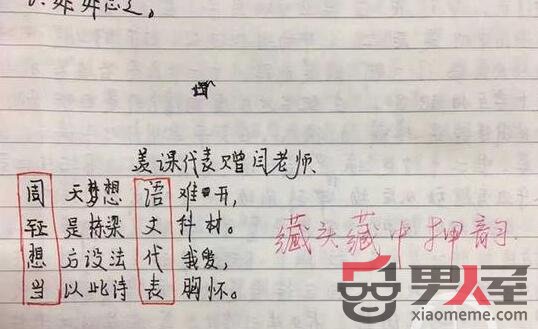 美课代表赠闫老师
周天梦想语难开,
至是栋梁文科材。
想方设法代我爱,
当以此诗表胸怀。
藏头藏中押韵.
男人屋
xiaomeme.com